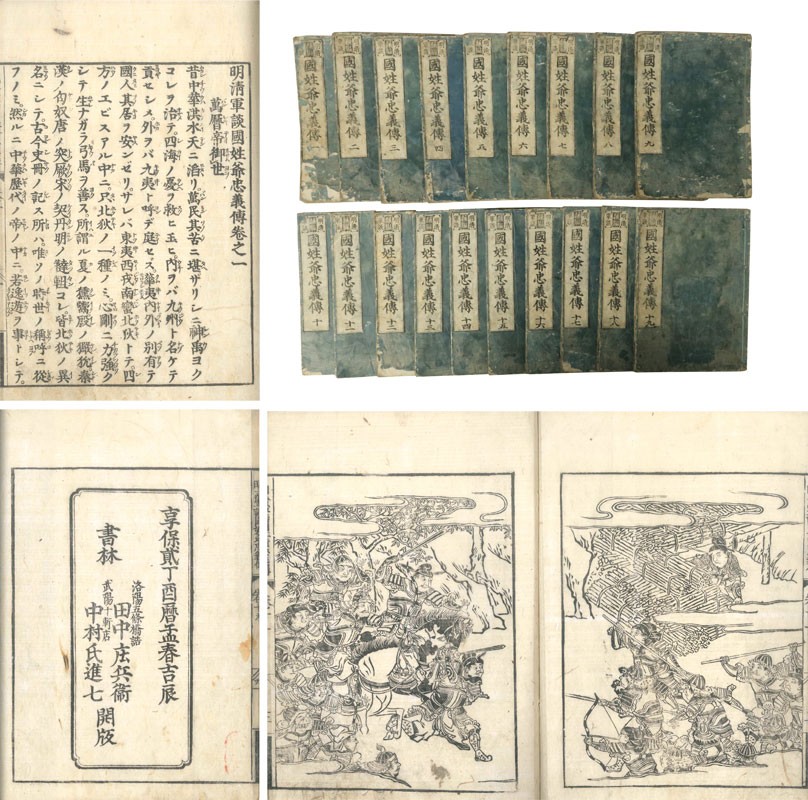 明清軍談國姓爺忠義傳卷之一
萬曆帝御世
昔中華洪水天ニ滔リ萬民其苦ニ堪ザリシニ神禹ヨク
コレヲ治テ四海ノ憂ヲ救ヒ玉ヒ内ヲバ九州ト名ケテ
貢セシメ外ヲバ九夷ト呼デ庭セズ華夷内外ノ別有テ
國人其居ヲ安ンゼリサレバ東夷西戎南蛮北狄トテ四
方ノエビスアル中ニ只北狄ノ一種ノミ心剛ニ力強ク
シテ生ナガラ弓馬ヲ善ス所謂ル夏ノ獯鬻殷ノ玁狁秦
漢ノ匈奴唐ノ突厥宋ノ契丹明ノ韃靼コレ皆北狄ノ異
名ニシテ古今史冊ノ記ス所ハ唯ソノ時世ノ稱呼ニ從
フノミ然ルニ中華歴代ノ帝ノ中ニ若逸遊ヲ事トシテ
國姓爺忠義傳 一
國姓爺忠義傳 二
國姓爺忠義傳 三
國姓爺忠義傳 四
國姓爺忠義傳 五
國姓爺忠義傳 六
國姓爺忠義傳 七
國姓爺忠義傳 八
國姓爺忠義傳 九
國姓爺忠義傳 十
國姓爺忠義傳 十一
國姓爺忠義傳 十二
國姓爺忠義傳 十三
國姓爺忠義傳 十四
國姓爺忠義傳 十五
國姓爺忠義傳 十六
國姓爺忠義傳 十七
國姓爺忠義傳 十八
國姓爺忠義傳 十九
享保貳丁酉曆孟春吉辰
書林
洛陽五條橋詰
田中庄兵衛
武陽十軒店
中村氏進七 開版